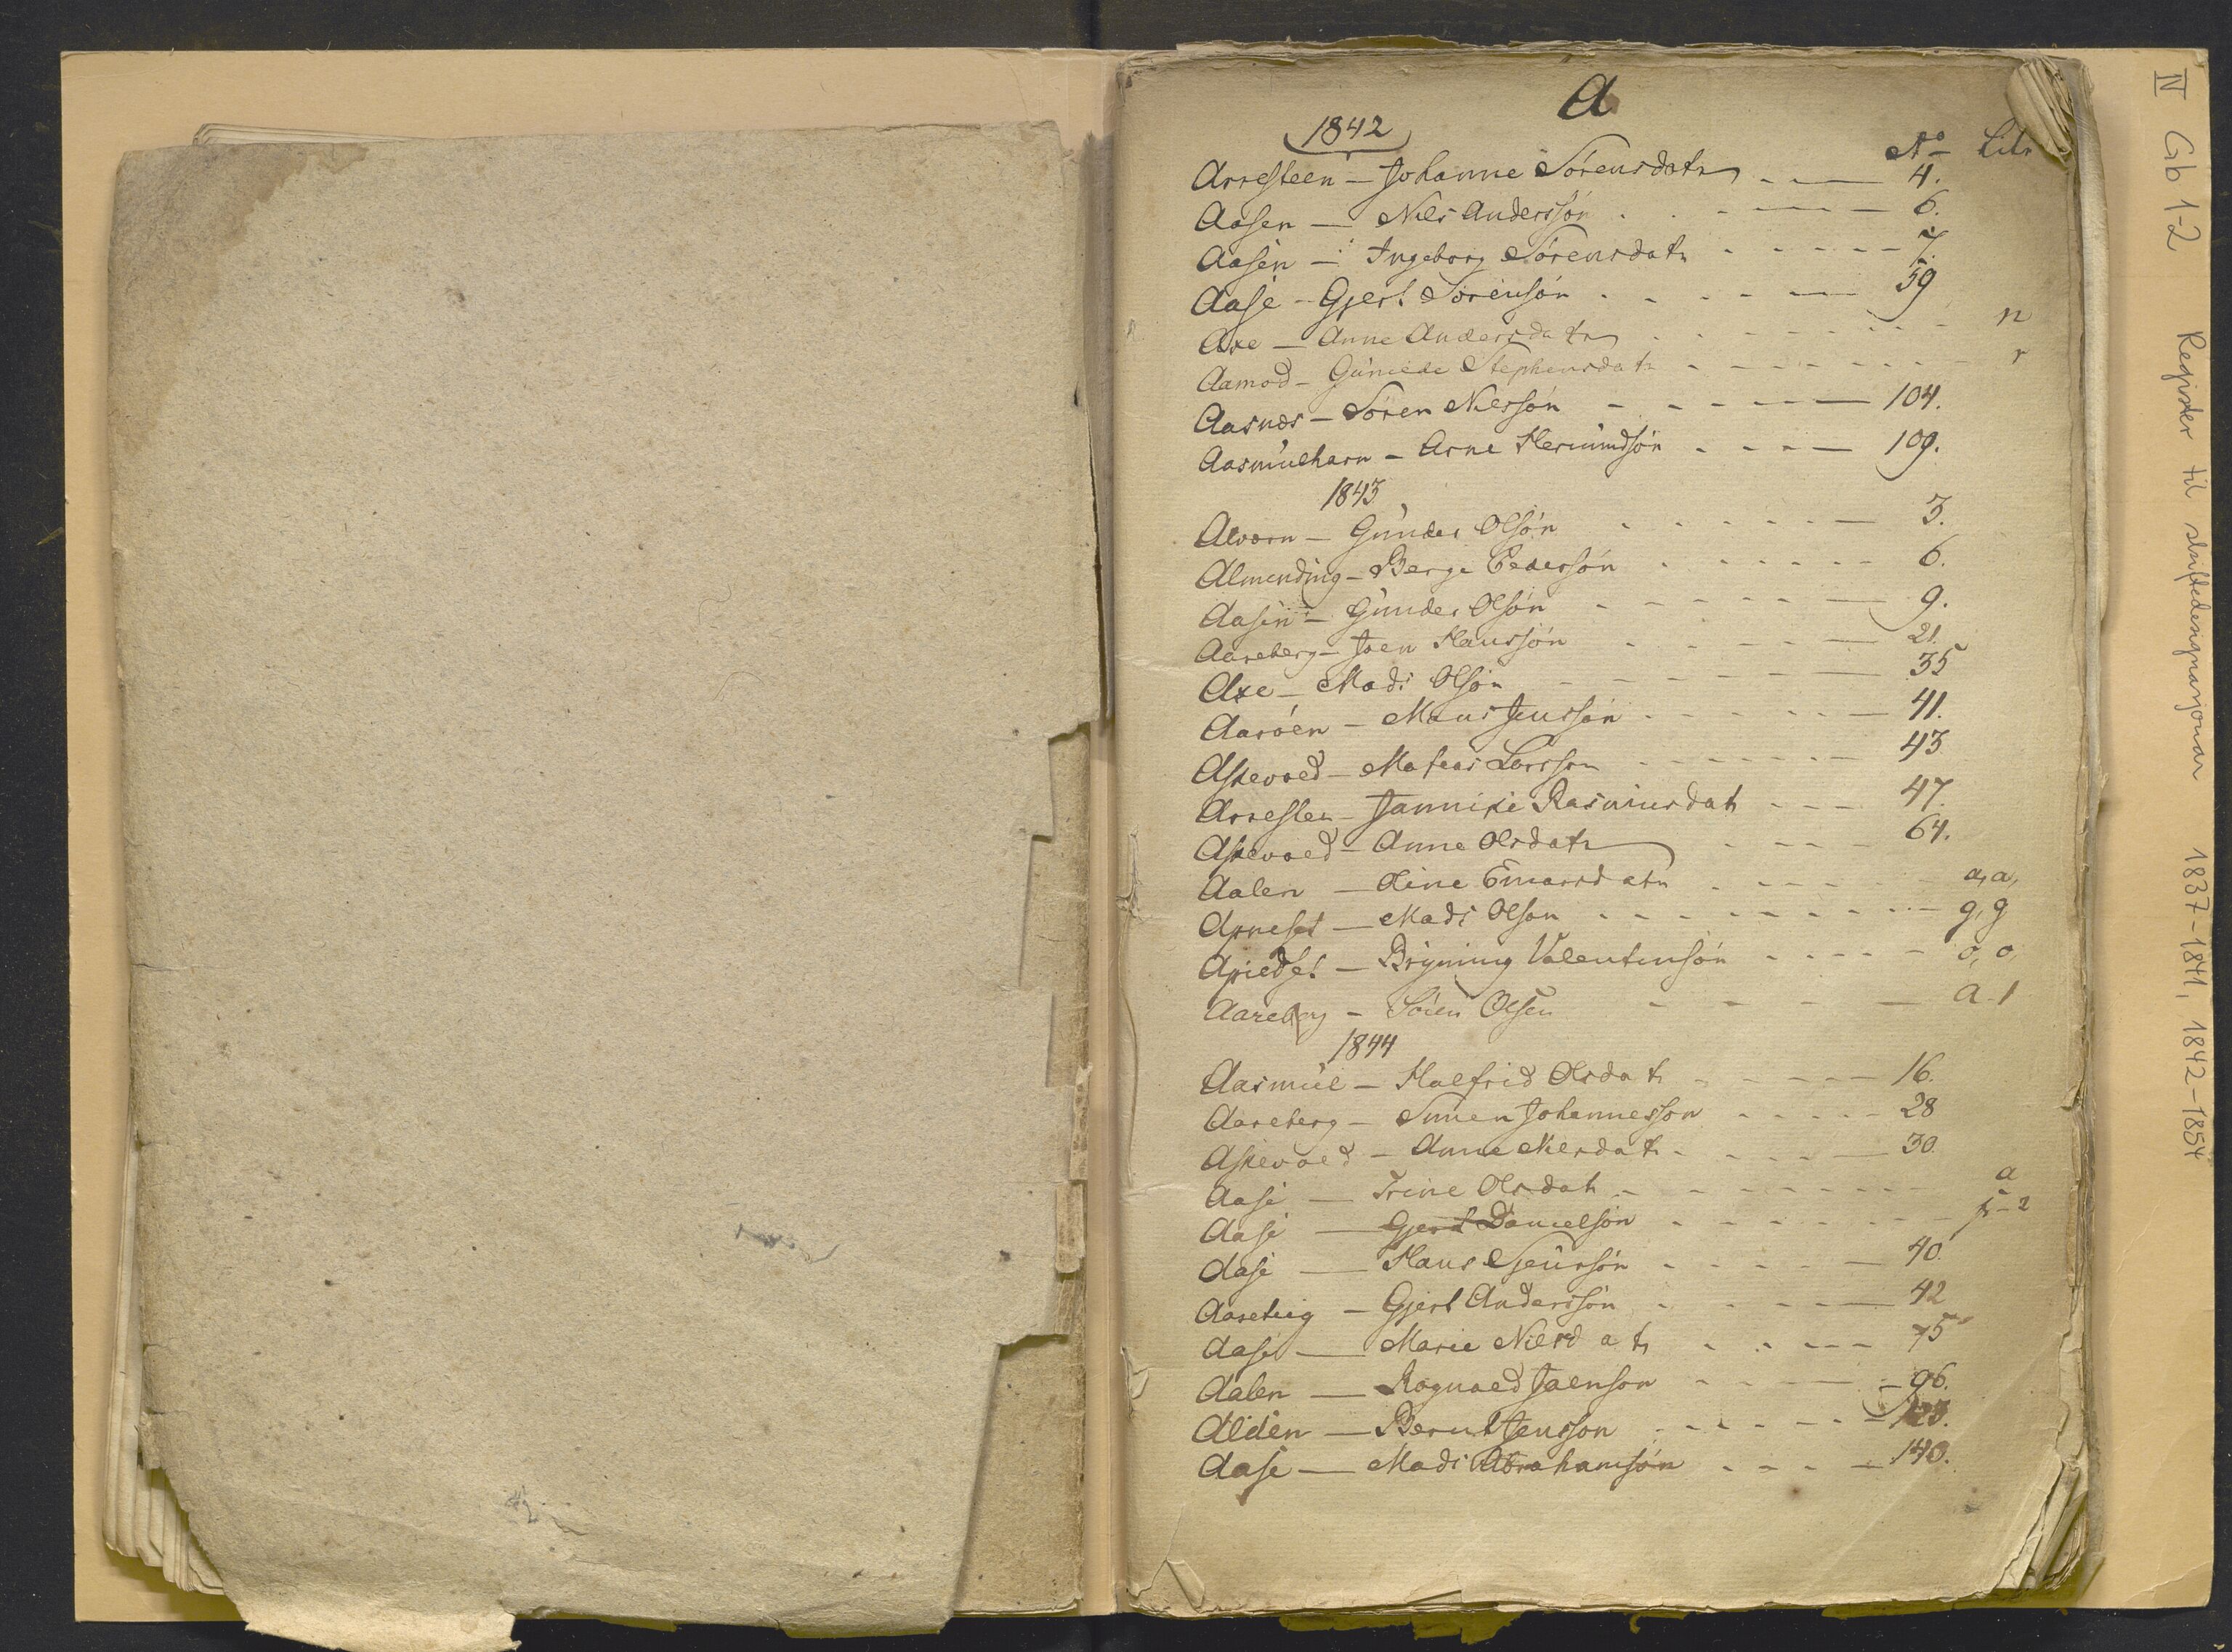 A
1842
No Litr
Arresteen - Johanne Sörensdatr - - 4.
Aasen - Nils Anderssön - - 6.
Aasen - Ingeborg Sörensdatr - - 7.
Aase - Gjert Sörensön - - 59
Axe - Anne Andersdatr - - n
Aamod - Stephensdatr - - r
Aasnæs - Sören Nilssön - - 104.
Aasmulharn - Arne Hermundsön - - 109.
1843
Alværn - Gunder Olsön - - 3.
Almending - Berge Pedersön - - 6.
Aasen - Gunder Olsön - - 9.
Aareberg - Joen Hanssön - - 21.
Axe - Mads Olsön - - 35
Aaröen - Mons Jenssön - - 41.
Askevold - Mateas Larsson - - 43
Arresten - Jannike Rasmusdat - - 47.
Askevold - Anne Olsdatr - - 64.
Aalen - Oline Omarsdatr - - a, a,
Apneset - Mads Olson - - g, g
Valentinsön - - o, o,
Aareberg - Sören Olsen - - a-1
1844
Aasmul - Halfrid Olsdatr - - 16.
Aareberg - Simen Johannesson - - 28
Askevold - Anne Nilsdatr - - 30.
Aase - Trine Olsdatr - - a
Aase - Gjert Danielsön - - -2
Aase - Hans Sjeursön - - 40.
Gjert Anderssön - - 42
Aase - Marie Nilsdatr - - 75
Aalen - Rognald Joenson - - 96.
Alden - Bernt Jensson - - 123.
Aase - Mads Abrahamsön - - 140.
IV Gb 1-2 Register til skiftedesignasjonar 1837-1841, 1842-1854